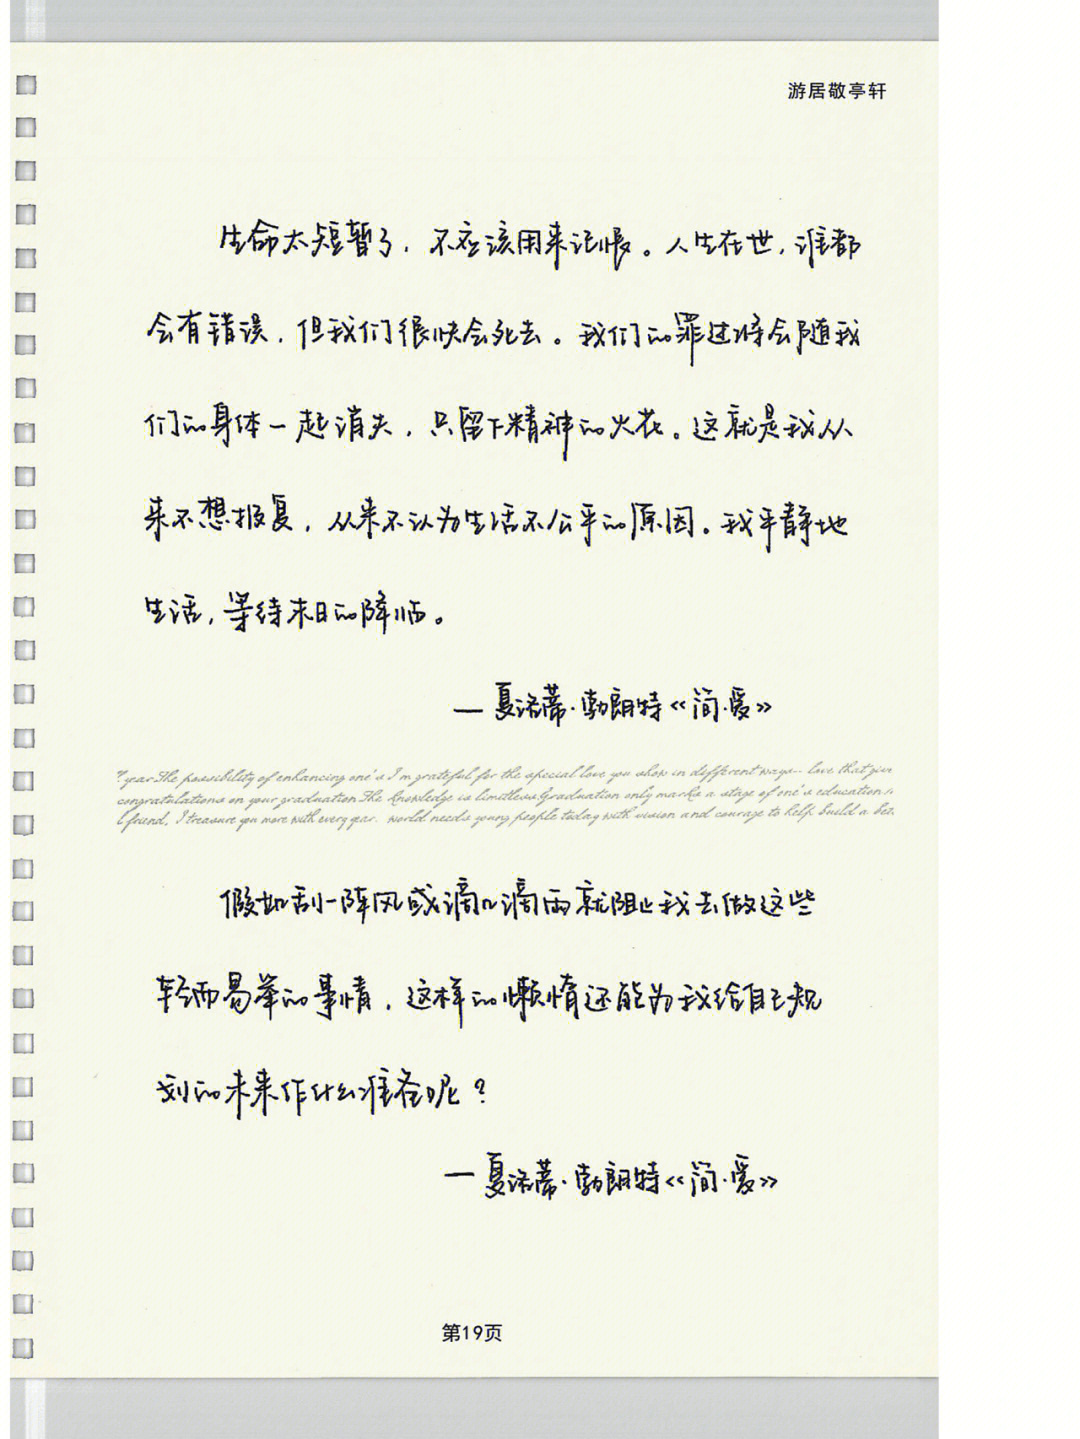 游居敬亭轩
生命太短暂了，不应该用来记恨。人生在世，谁都
会有错误，但我们很快会死去。我们的罪过将会随我
们的身体一起消失，只留下精神的火花。这就是我从
来不想报复，从来不认为生活不公平的原因。我平静地
生活，等待末日的降临。
—夏洛蒂·勃朗特《简·爱》
year The possibility of enhancing one's I'm grateful for the special love you show in different ways-- love that give
congratulations on your graduation The knowledge is limitless Graduation only marks a stage of one's education is
friend, I treasure you more with every year. world needs young people today with vision and courage to help build a bet
假如刮一阵风或滴几滴雨就阻止我去做这些
轻而易举的事情，这样的懒惰还能为我给自己规
划的未来作什么准备呢？
—夏洛蒂·勃朗特《简·爱》
第19页